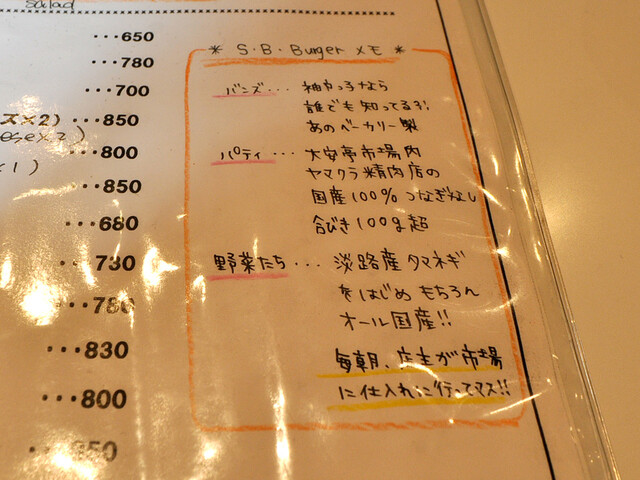 salad
･･･650
･･･780
･･･700
ス×2) ･･･850
ese×3)
×1) ･･･800
･･･850
･･･680
･･･730
･･･780
･･･830
･･･800
･･･850
* S.B.Burger メモ *
バンズ･･･ 神戸っ子なら
誰でも知ってる?!
あのベーカリー製
パティ･･･ 大安亭市場内
ヤマクラ精肉店の
国産100% つなぎなし
合びき100g超
野菜たち･･･ 淡路産タマネギ
をはじめ もちろん
オール国産!!
毎朝、店主が市場
に仕入れに行ってマス!!